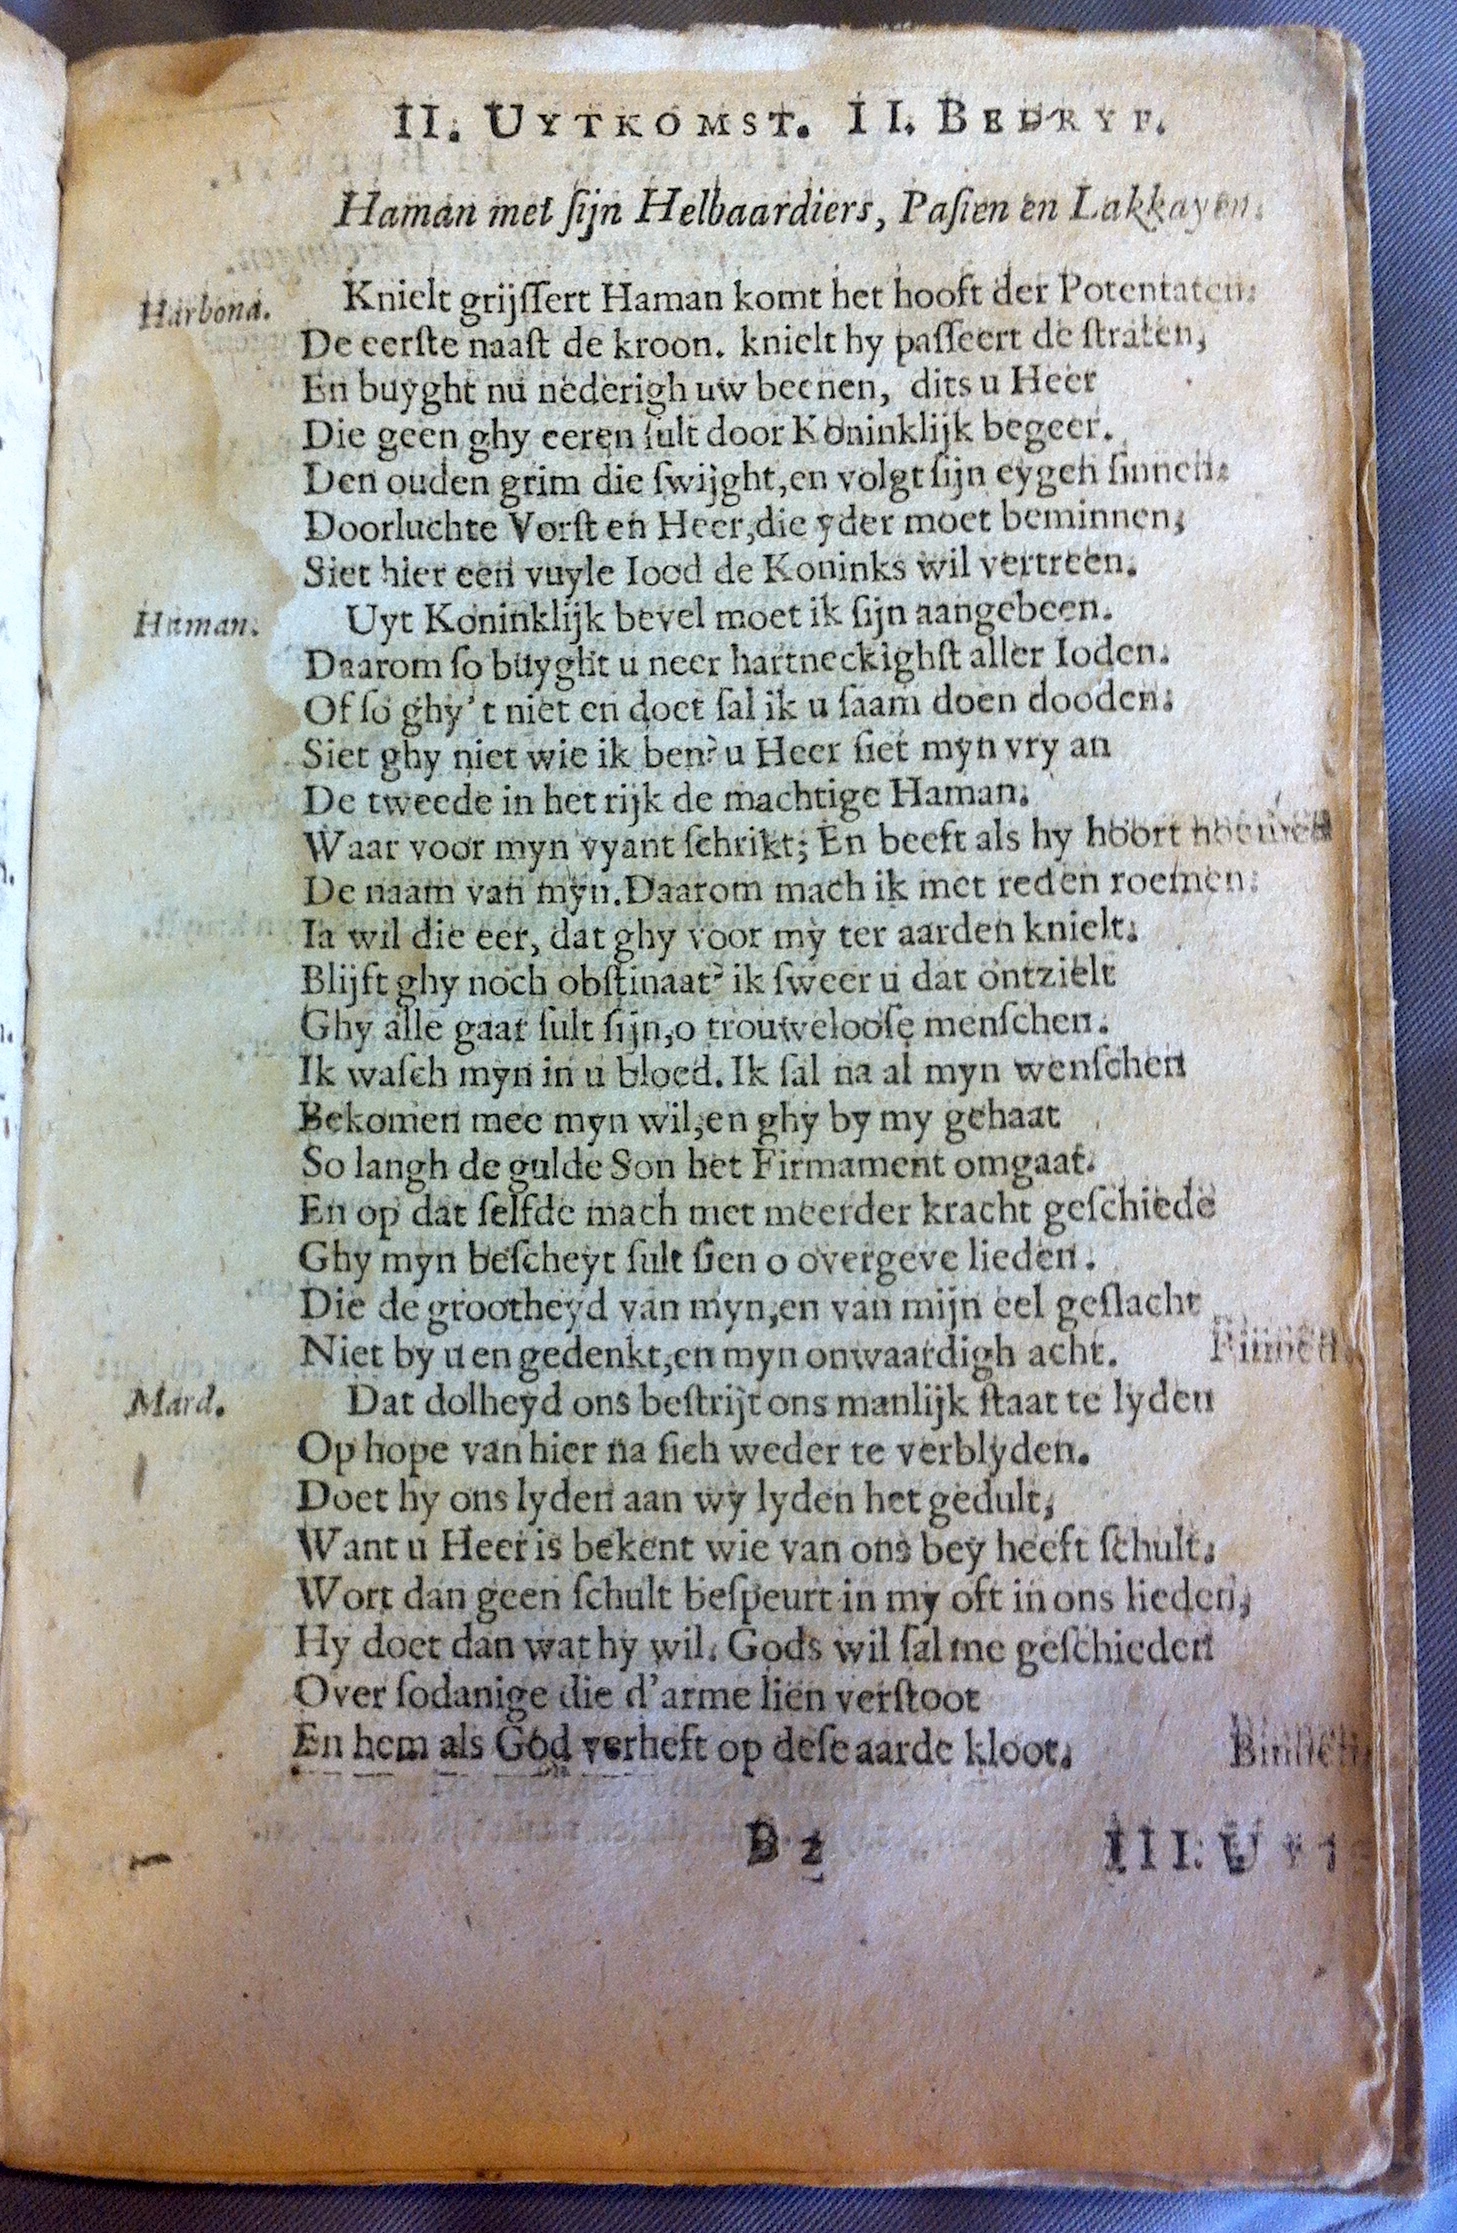 II. UYTKOMST. II. BEDRYF.
Haman met ſijn Helbaardiers, Paſien en Lakkayen.
Harbona. Knielt grijſſert Haman komt het hooft der Potentaten.
De eerſte naaſt de kroon. knielt hy paſſeert de ſtraten,
En buyght nu nederigh uw beenen, dits u Heer
Die geen ghy eeren ſult door Koninklijk begeer.
Den ouden grim die ſwijght, en volgt ſijn eygen ſinnen.
Doorluchte Vorſt en Heer, die yder moet beminnen,
Siet hier een vuyle Iood de Koninks wil vertreen.
Haman. Uyt Koninklijk bevel moet ik ſijn aangebeen.
Daarom ſo buyght u neer hartneckighſt aller Ioden.
Of ſo ghy't niet en doet ſal ik u ſaam doen dooden.
Siet ghy niet wie ik ben? u Heer ſiet myn vry an
De tweede in het rijk de machtige Haman.
Waar voor myn vyant ſchrikt; En beeft als hy hoort noemen
De naam van myn. Daarom mach ik met reden roemen.
Ia wil die eer, dat ghy voor my ter aarden knielt.
Blijft ghy noch obſtinaat? ik ſweer u dat ontzielt
Ghy alle gaat ſult ſijn, o trouwelooſe menſchen.
Ik waſch myn in u bloed. Ik ſal na al myn wenſchen
Bekomen mee myn wil, en ghy by my gehaat
So langh de gulde Son het Firmament omgaat.
En op dat ſelfde mach met meerder kracht geſchiede
Ghy myn beſcheyt ſult ſien o overgeve lieden.
Die de grootheyd van myn, en van mijn eel geſlacht
Niet by u en gedenkt, en myn onwaardigh acht. Binnen.
Mard. Dat dolheyd ons beſtrijt ons manlijk ſtaat te lyden
Op hope van hier na ſich weder te verblyden.
Doet hy ons lyden aan wy lyden het gedult,
Want u Heer is bekent wie van ons bey heeft ſchult.
Wort dan geen ſchult beſpeurt in my oft in ons lieden,
Hy doet dan wat hy wil. Gods wil ſal me geſchieden
Over ſodanige die d'arme lien verſtoot
En hem als God verheft op deſe aarde kloot. Binnen.
B 2 III. UYT-